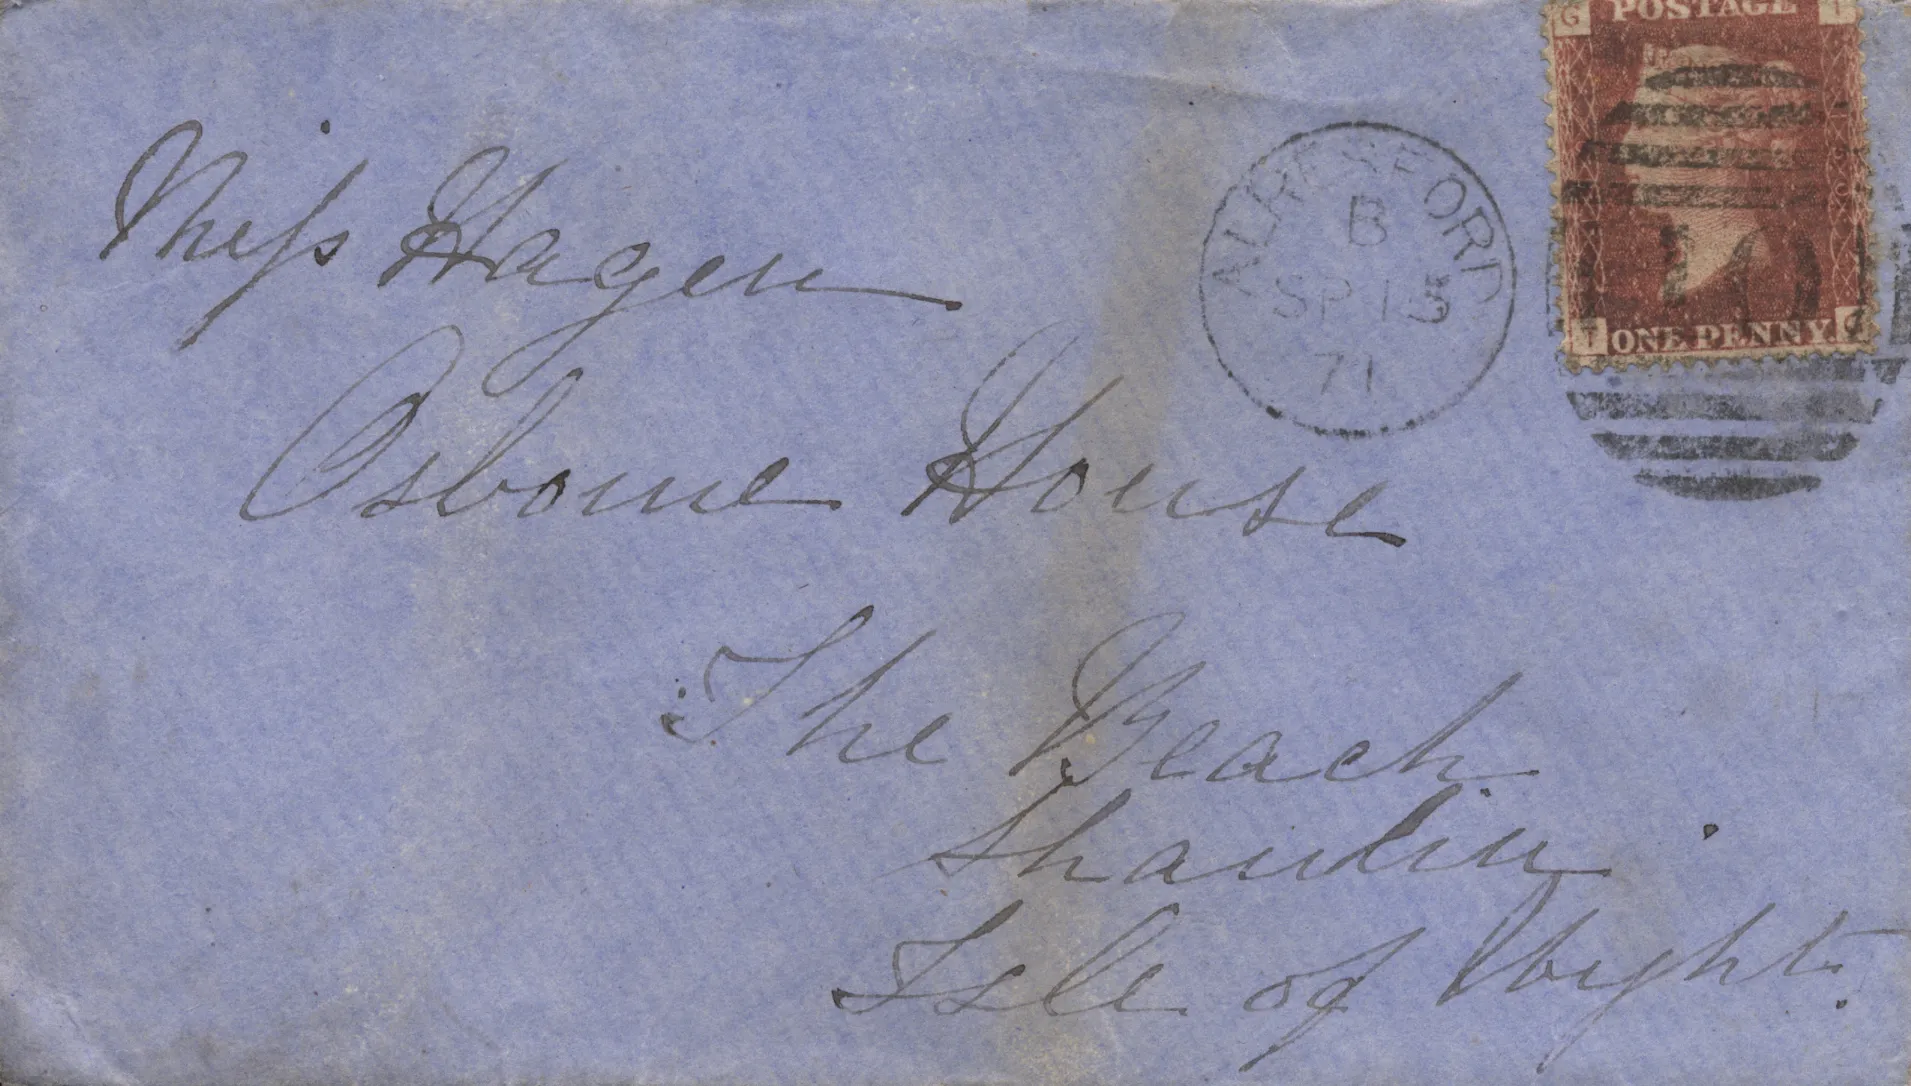 G POSTAGE I
I ONE PENNY. G
ALRESFORD
B
SP 15
71
Miss Hagen
Osborne House
The Beach
Shanklin
Isle of Wight.